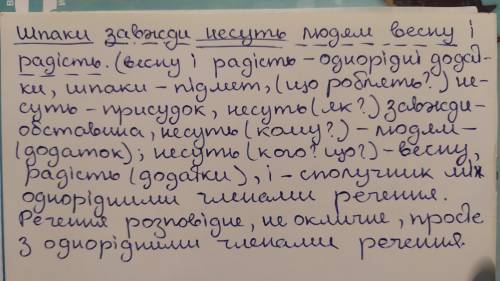 Шпаки завжди несуть людям весну і
радість. (весну і радість – однорідні додат-
ки, шпаки – підмет, (що роблять?) не-
суть – присудок, несуть (як?) завжди –
обставина, несуть (кому?) – людям –
(додаток); несуть (кого? що?) – весну,
радість (додатки), і – сполучник між
однорідними членами речення.
Речення розповідне, не окличне, просте
з однорідними членами речення.